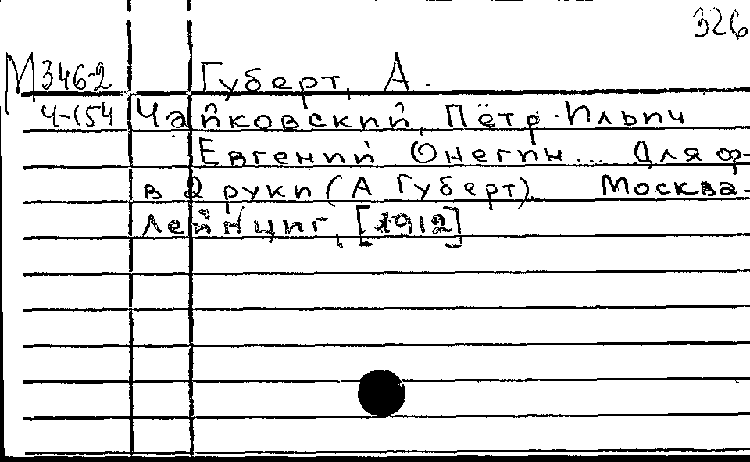 326
М346-2 Губерт, А.
Ч-154 Чайковский, Пётр Ильич
Евгений Онегин... Для ф-
в 2 руки (А Губерт). Москва-
Лейпциг, [1912]